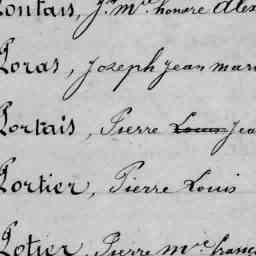 Pontais, Jn. mie. honoré Alex
Poras, Joseph jean mari
Portais, Pierre Louis Jea
Portier, Pierre Louis
Potier, Pierre me. franç